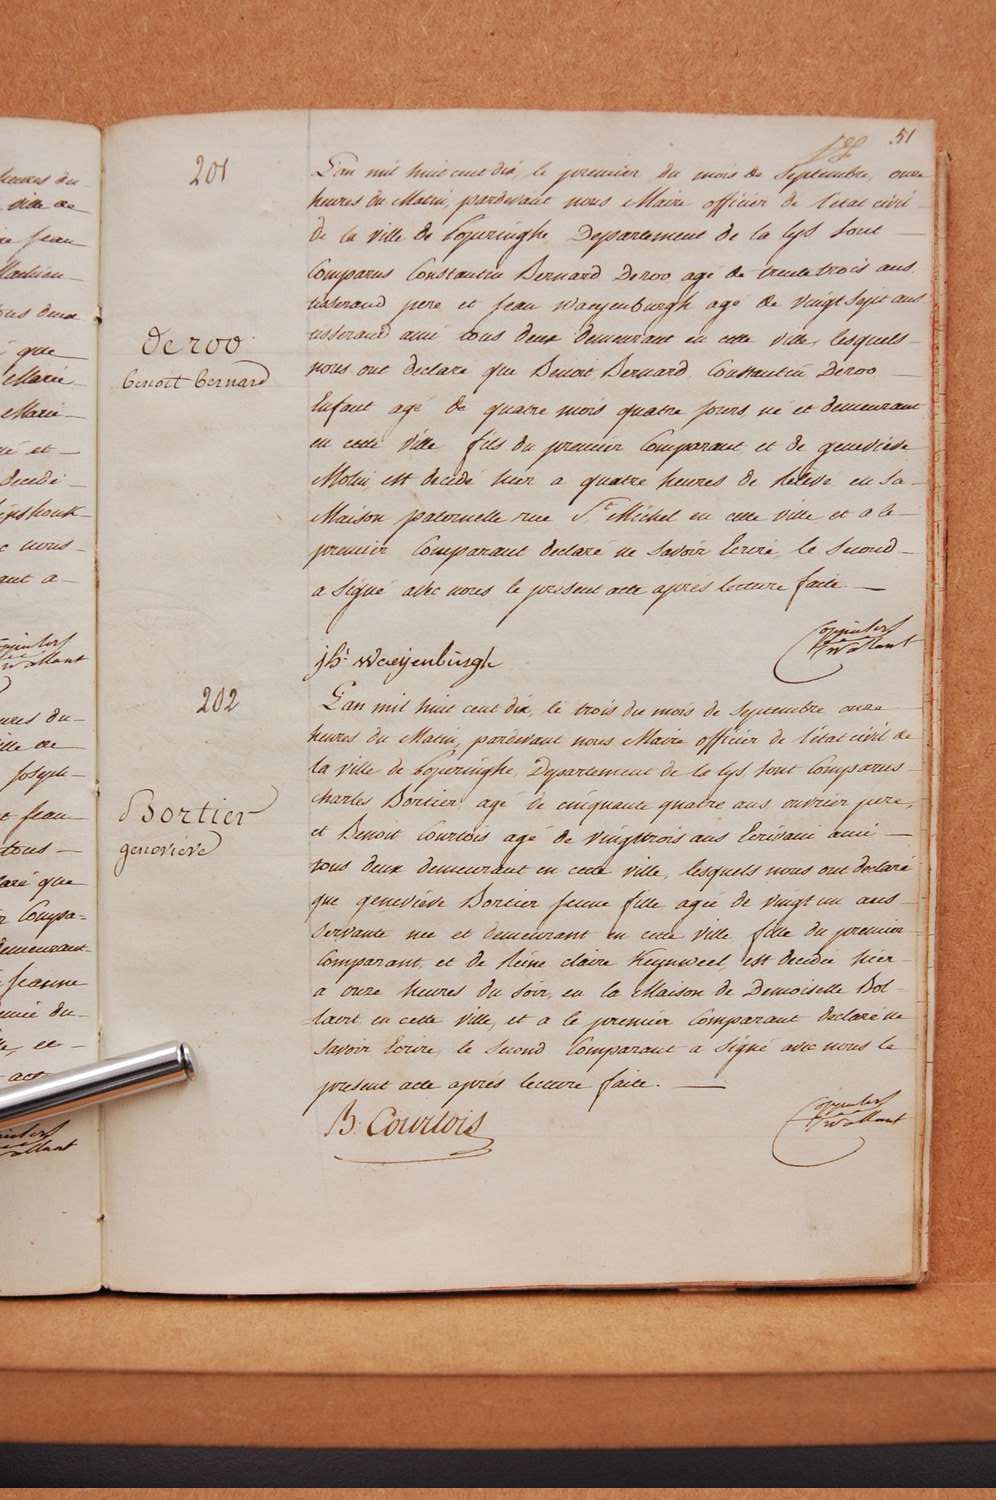 51
201
L'an mil huit cent dix, le premier du mois de Septembre, onze
heures du Matin, pardevant nous Maire officier de l'état civil
de la ville de Poperinghe, Departement de la Lys sont
Comparus Constantin Bernard Deroo agé de trente trois ans
tisserand pere et Jean Waeyenburgh agé de vingt sept ans
tisserand ami tous deux demeurant en cette ville, lesquels
nous ont declaré que Benoit Bernard Constantin Deroo
Enfant agé de quatre mois quatre jours, né et demeurant
en cette ville fils du premier Comparant et de geneviève
est decédé hier a quatre heures de Relevé en sa
Maison paternelle rue St Michel en cette ville et a le
premier Comparant declaré ne savoir Ecrire le second
a signé avec nous le present acte après lecture faite —
de roo
benoit bernard
jh. waeyenburgh
202
L'an mil huit cent dix, le trois du mois de Septembre onze
heures du Matin, pardevant nous Maire officier de l'état civil de
la ville de Poperinghe, Departement de la Lys sont Comparus
charles Bortier agé de cinquante quatre ans ouvrier pere,
et Benoit Courtois agé de vingttrois ans Ecrivain ami —
tous deux demeurant en cette ville, lesquels nous ont declaré
que geneviève Bortier jeune fille agée de vingt un ans
servante née et demeurant en cette ville fille du premier
Comparant, et de Reine claire est decédée hier
a onze heures du soir, en la Maison de Demoiselle Bol-
laert en cette ville, et a le premier Comparant declaré ne
savoir Ecrire, le second Comparant a signé avec nous le
present acte après lecture faite. —
Bortier
geneviève
B. Courtois